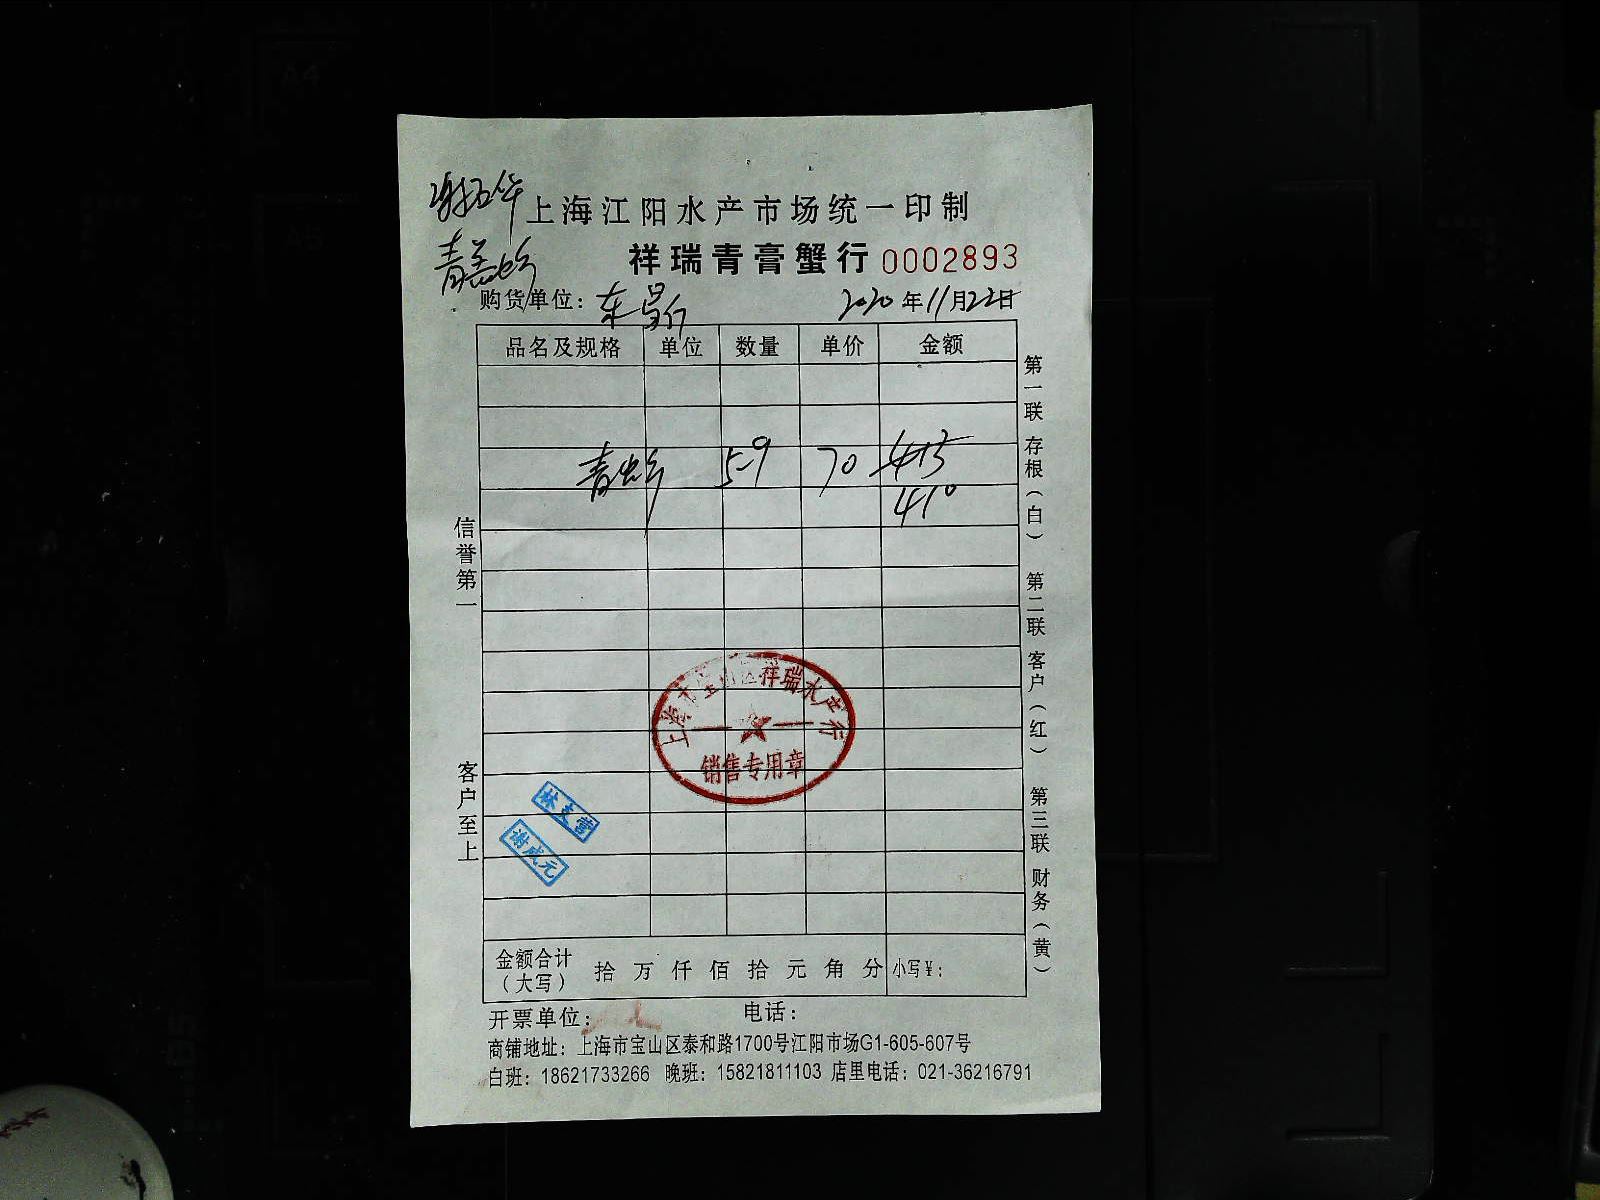 上海江阳水产市场统一印制
祥瑞青膏蟹行 0002893
购货单位: 东 2020年11月22日
品名及规格 单位 数量 单价 金额
青 5.9 70 413
410
信誉第一
客户至上
第一联 存根(白) 第二联 客户(红) 第三联 财务(黄)
上海市宝山区祥瑞水产行
销售专用章
林支营
谢成元
金额合计(大写) 拾 万 仟 佰 拾 元 角 分 小写¥:
开票单位: 电话:
商铺地址: 上海市宝山区泰和路1700号江阳市场G1-605-607号
白班: 18621733266 晚班: 15821811103 店里电话: 021-36216791
A4
A5